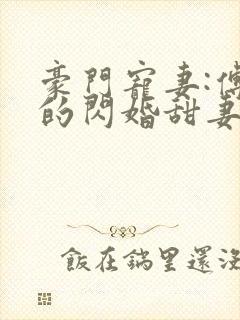 豪門寵妻:傅
的閃婚甜妻
飯在鍋里還沒